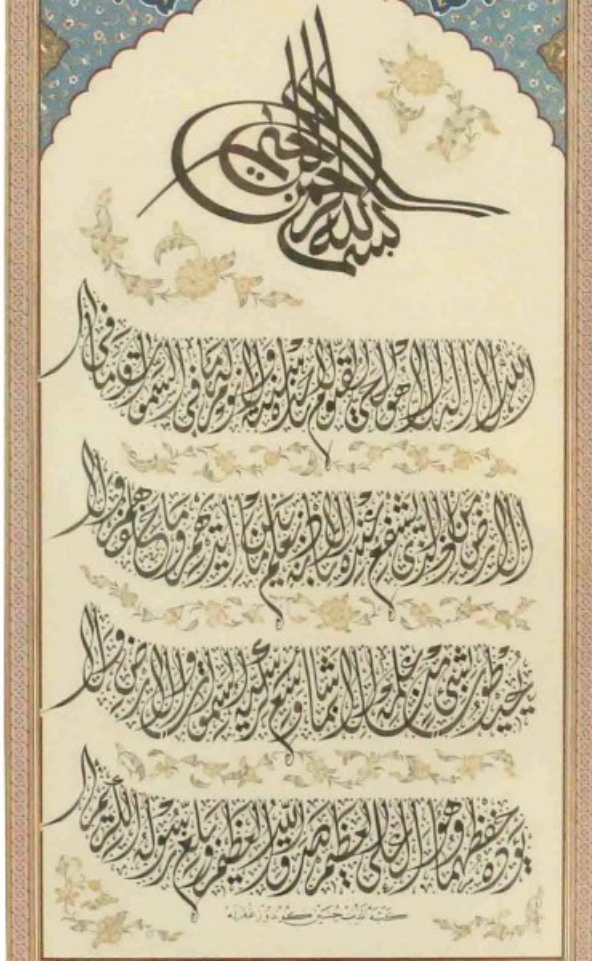 بسم الله الرحمن الرحيم
الله لا إله إلا هو الحي القيوم لا تأخذه سنة ولا نوم له ما في السموات وما في
الارض من ذا الذي يشفع عنده إلا بإذنه يعلم ما بين أيديهم وما خلفهم ولا
يحيطون بشئ من علمه إلا بما شاء وسع كرسيه السموات والارض ولا
يؤده حفظهما وهو العلي العظيم صدق الله العظيم وبلغ رسوله الكريم
كتبه حسين كوندوز غفر له